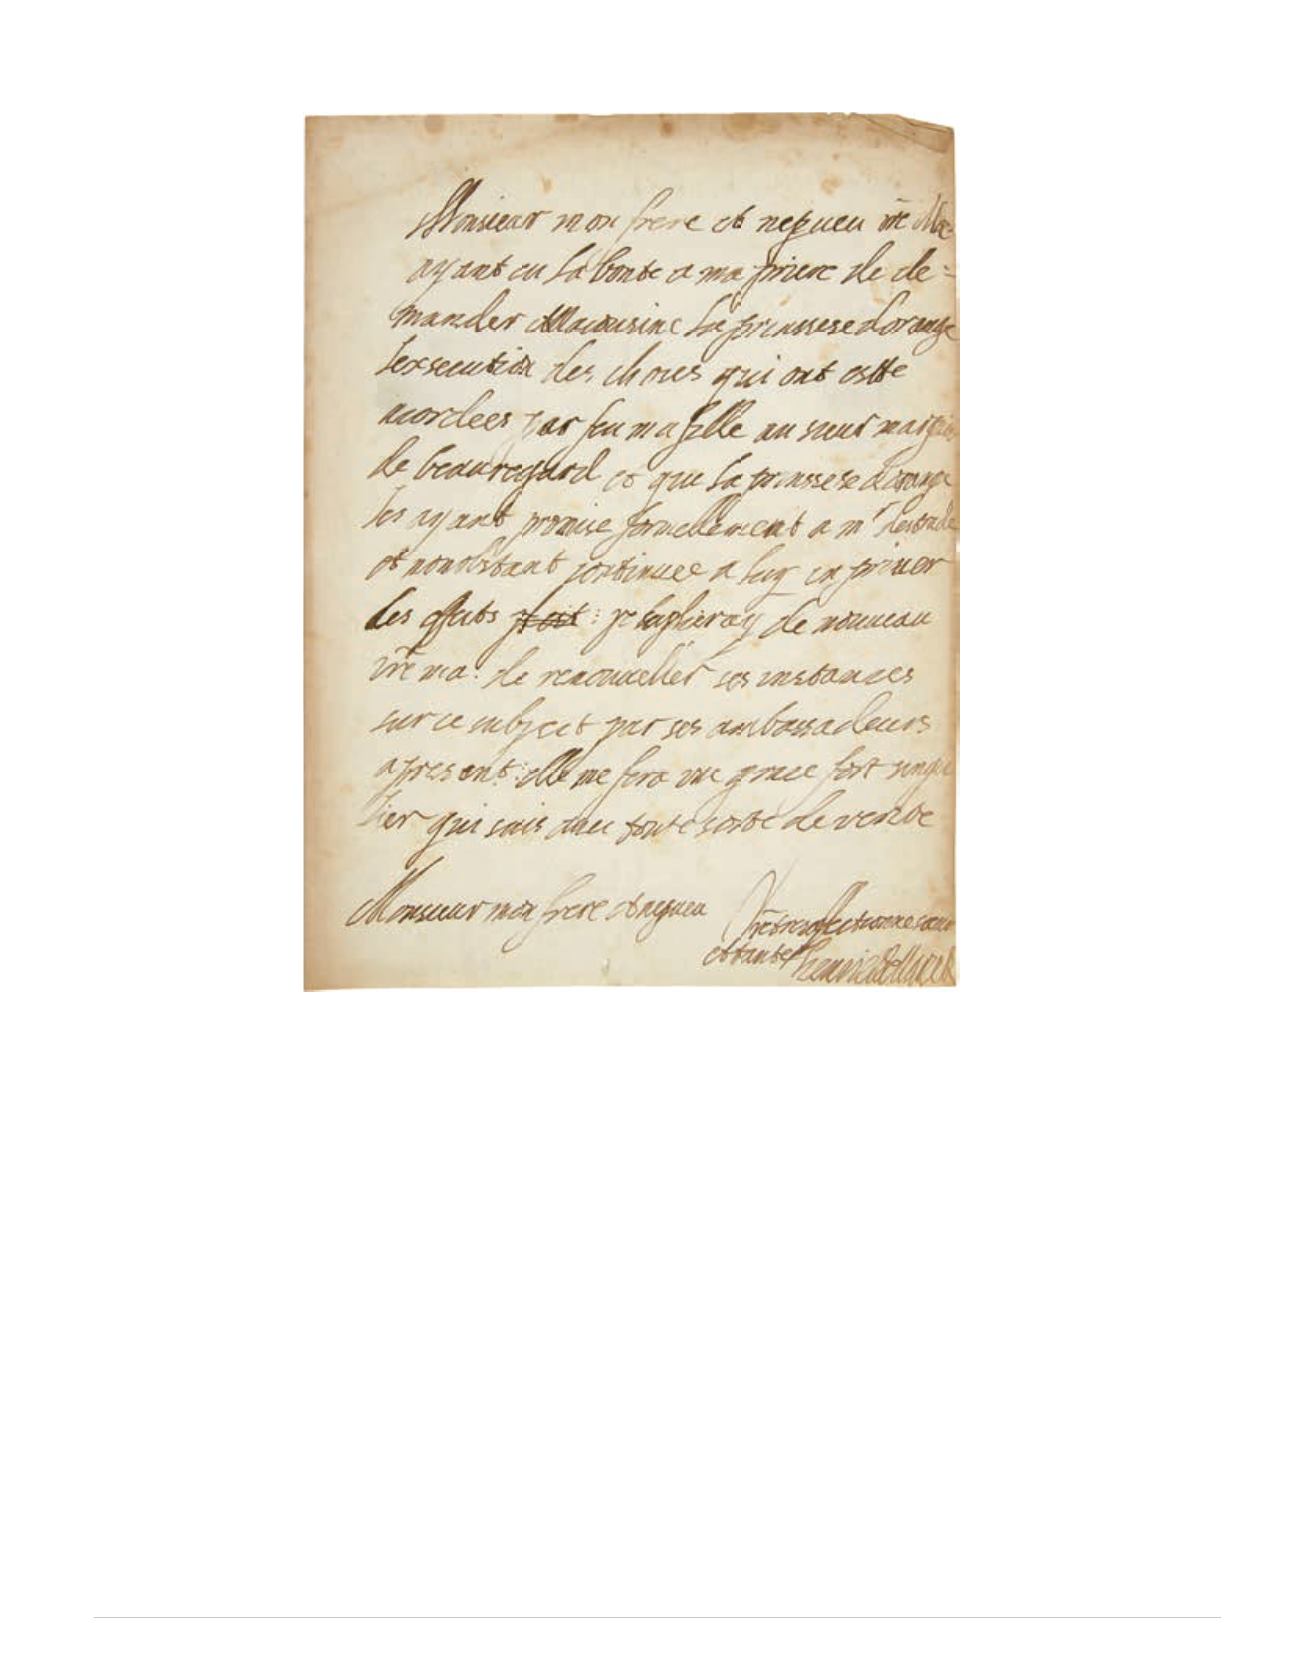 Monsieur mon frere et nepueu vre Ma:
ayant eu la bonte a ma priere de de=
mander a Macousine la prinssese dorange
lexsecution des choses qui ont este
acordees par feu ma fille au sieur marquis
de beauregard et que la prinssese dorange
les ayant promise formellement a mr destrade
et nonobstant continuee a luy en priuer
des effects : je suplieray de nouueau
vre ma: de renouueller ses instances
sur ce subject par ses ambassadeurs
apresent: elle me fera une grace fort singu
lier qui suis auec toute sorte de verite
Monsieur mon frere et nepueu
vre tres affectionnee soeur
et tante Henriette Marie R